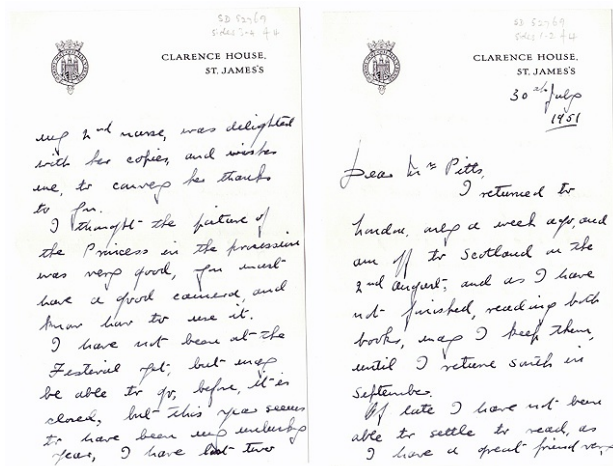 SD 52769
Sides 3-4 of 4
CLARENCE HOUSE,
ST. JAMES'S
my 2nd nurse, was delighted
with her copies, and wishes
me, to convey her thanks
to you.
I thought the picture of
the Princess in the procession
was very good, you must
have a good camera, and
know how to use it.
I have not been at the
Festival yet, but may
be able to go, before, it is
closed, but this year seems
to have been my unlucky
year, I have lost two
SD 52769
Sides 1-2 of 4
CLARENCE HOUSE,
ST. JAMES'S
30th July
1951
Dear Mrs Pitts,
I returned to
London, only a week ago, and
am off to Scotland on the
2nd August, and as I have
not finished, reading both
books, may I keep them,
until I return south in
September.
Of late I have not been
able to settle to read, as
I have a great friend very